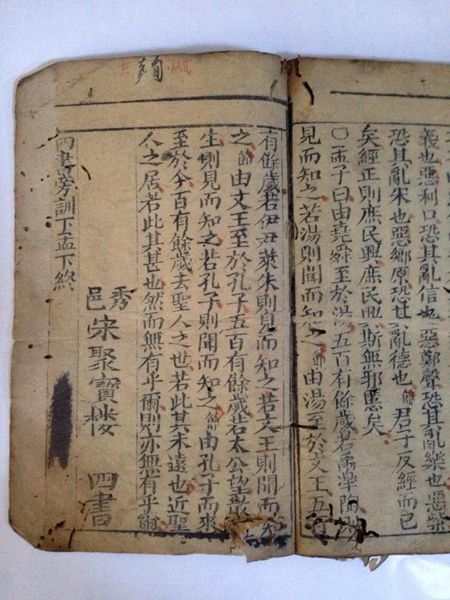 義也惡利口恐其亂信也惡鄭聲恐其亂樂也惡紫
恐其亂朱也惡鄉原恐其亂德也節君子反經而已
矣經正則庶民興庶民興斯無邪慝矣
○孟子曰由堯舜至於湯五百有餘歲若禹臯陶則
見而知之若湯則聞而知之節由湯至於文王五
有餘歲若伊尹萊朱則見而知之若文王則聞而知
之節由文王至於孔子五百有餘歲若太公望散
生則見而知之若孔子則聞而知之節由孔子而來
至於今百有餘歲去聖人之世若此其未遠也近聖
人之居若此其甚也然而無有乎爾則亦無有乎爾
秀邑宋聚寶楼 四書
書旁訓下孟下終